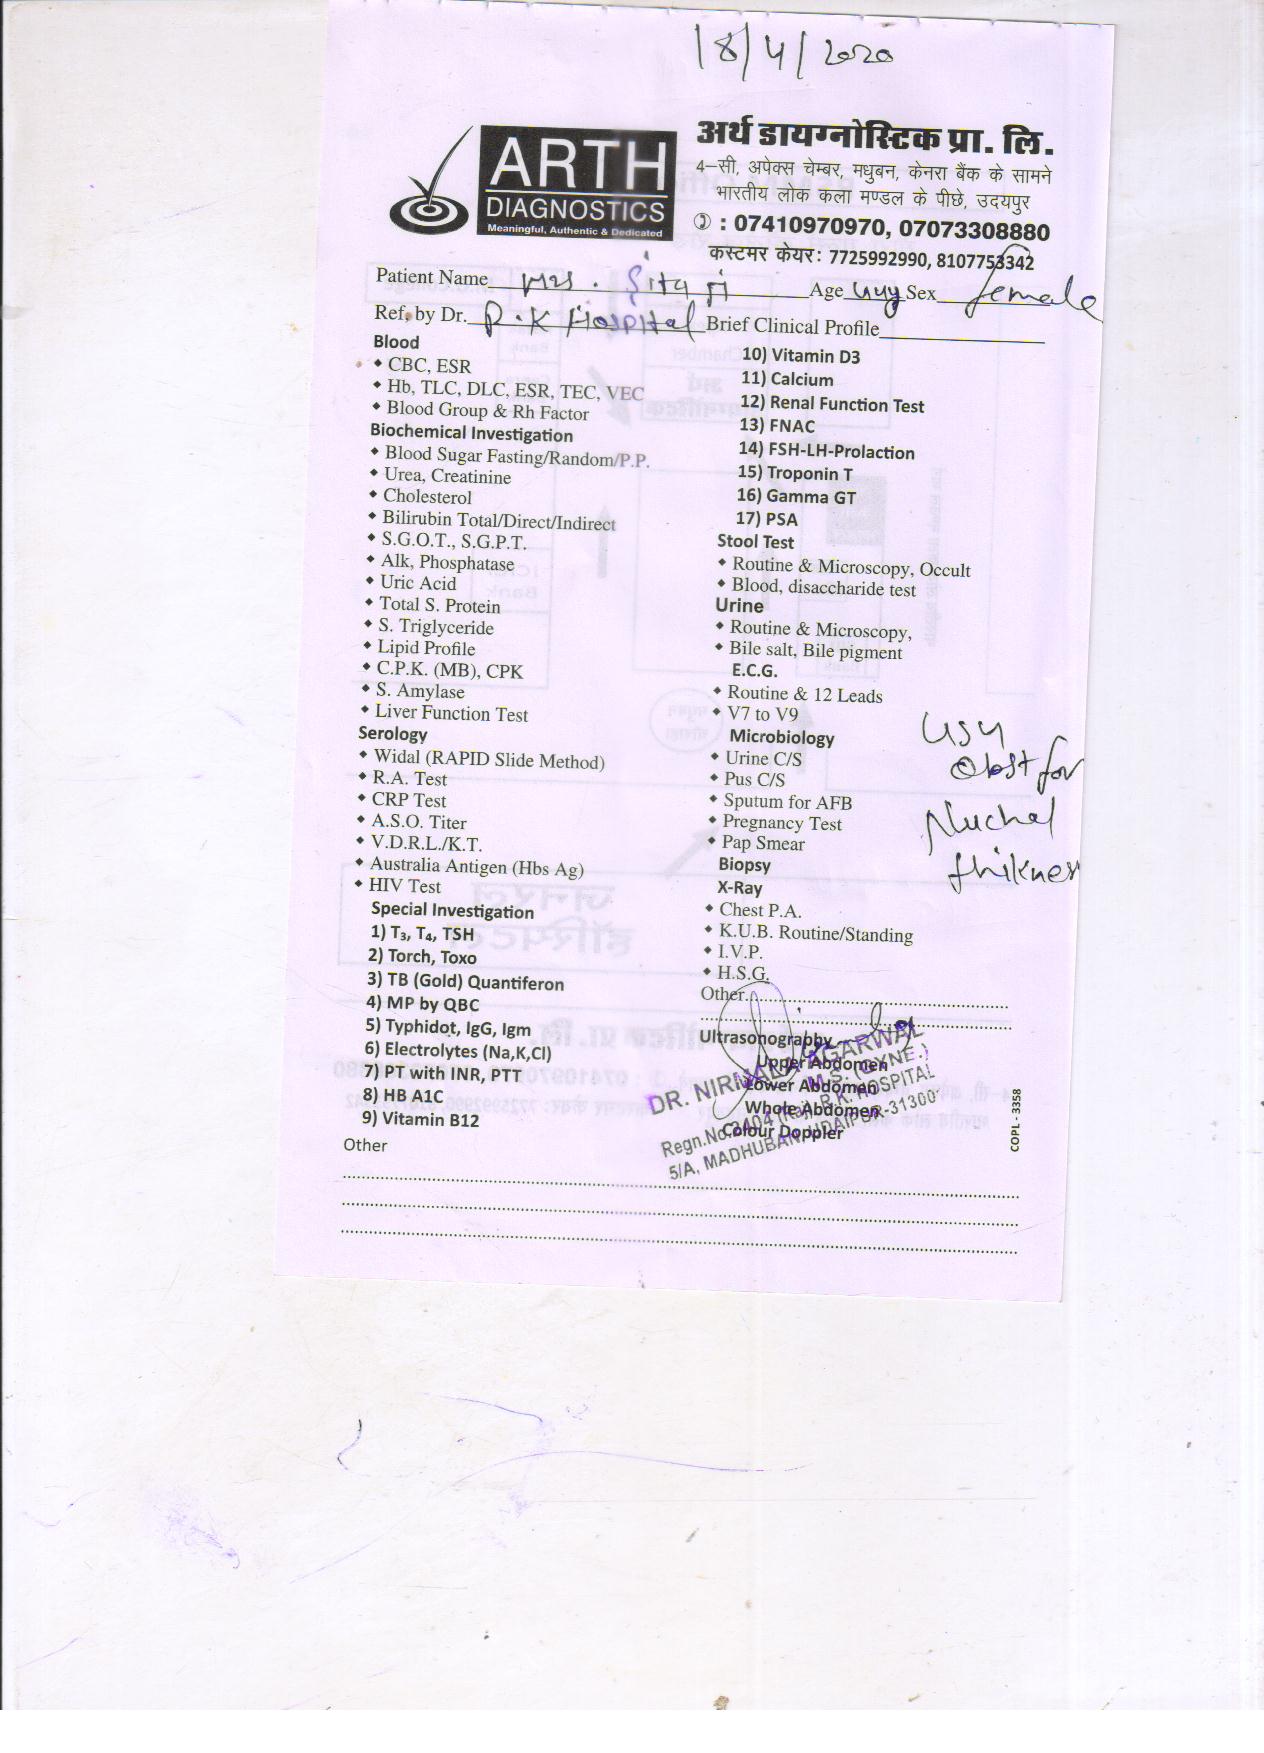 18/4/2020
ARTH
DIAGNOSTICS
Meaningful, Authentic & Dedicated
अर्थ डायग्नोस्टिक प्रा. लि.
4–सी, अपेक्स चेम्बर, मधुबन, केनरा बैंक के सामने
भारतीय लोक कला मण्डल के पीछे, उदयपुर
✆ : 07410970970, 07073308880
कस्टमर केयर: 7725992990, 8107753342
Patient Name Mrs. Sita Age Sex female
Ref. by Dr. R.K Hospital Brief Clinical Profile
Blood
• CBC, ESR
• Hb, TLC, DLC, ESR, TEC, VEC
• Blood Group & Rh Factor
Biochemical Investigation
• Blood Sugar Fasting/Random/P.P.
• Urea, Creatinine
• Cholesterol
• Bilirubin Total/Direct/Indirect
• S.G.O.T., S.G.P.T.
• Alk, Phosphatase
• Uric Acid
• Total S. Protein
• S. Triglyceride
• Lipid Profile
• C.P.K. (MB), CPK
• S. Amylase
• Liver Function Test
Serology
• Widal (RAPID Slide Method)
• R.A. Test
• CRP Test
• A.S.O. Titer
• V.D.R.L./K.T.
• Australia Antigen (Hbs Ag)
• HIV Test
Special Investigation
1) T₃, T₄, TSH
2) Torch, Toxo
3) TB (Gold) Quantiferon
4) MP by QBC
5) Typhidot, IgG, Igm
6) Electrolytes (Na,K,Cl)
7) PT with INR, PTT
8) HB A1C
9) Vitamin B12
Other
10) Vitamin D3
11) Calcium
12) Renal Function Test
13) FNAC
14) FSH-LH-Prolaction
15) Troponin T
16) Gamma GT
17) PSA
Stool Test
• Routine & Microscopy, Occult
• Blood, disaccharide test
Urine
• Routine & Microscopy,
• Bile salt, Bile pigment
E.C.G.
• Routine & 12 Leads
• V7 to V9
Microbiology
• Urine C/S
• Pus C/S
• Sputum for AFB
• Pregnancy Test
• Pap Smear
Biopsy
X-Ray
• Chest P.A.
• K.U.B. Routine/Standing
• I.V.P.
• H.S.G.
Other
Ultrasonography
Upper Abdomen
Lower Abdomen
Whole Abdomen
Colour Doppler
USG
Obst for
Nuchal
thiknes
DR. NIRMALA AGARWAL
M.S. (GYNE.)
Regn.No. 2404 (Raj). R.K. HOSPITAL
5/A, MADHUBAN, UDAIPUR-31300
COPL - 3358